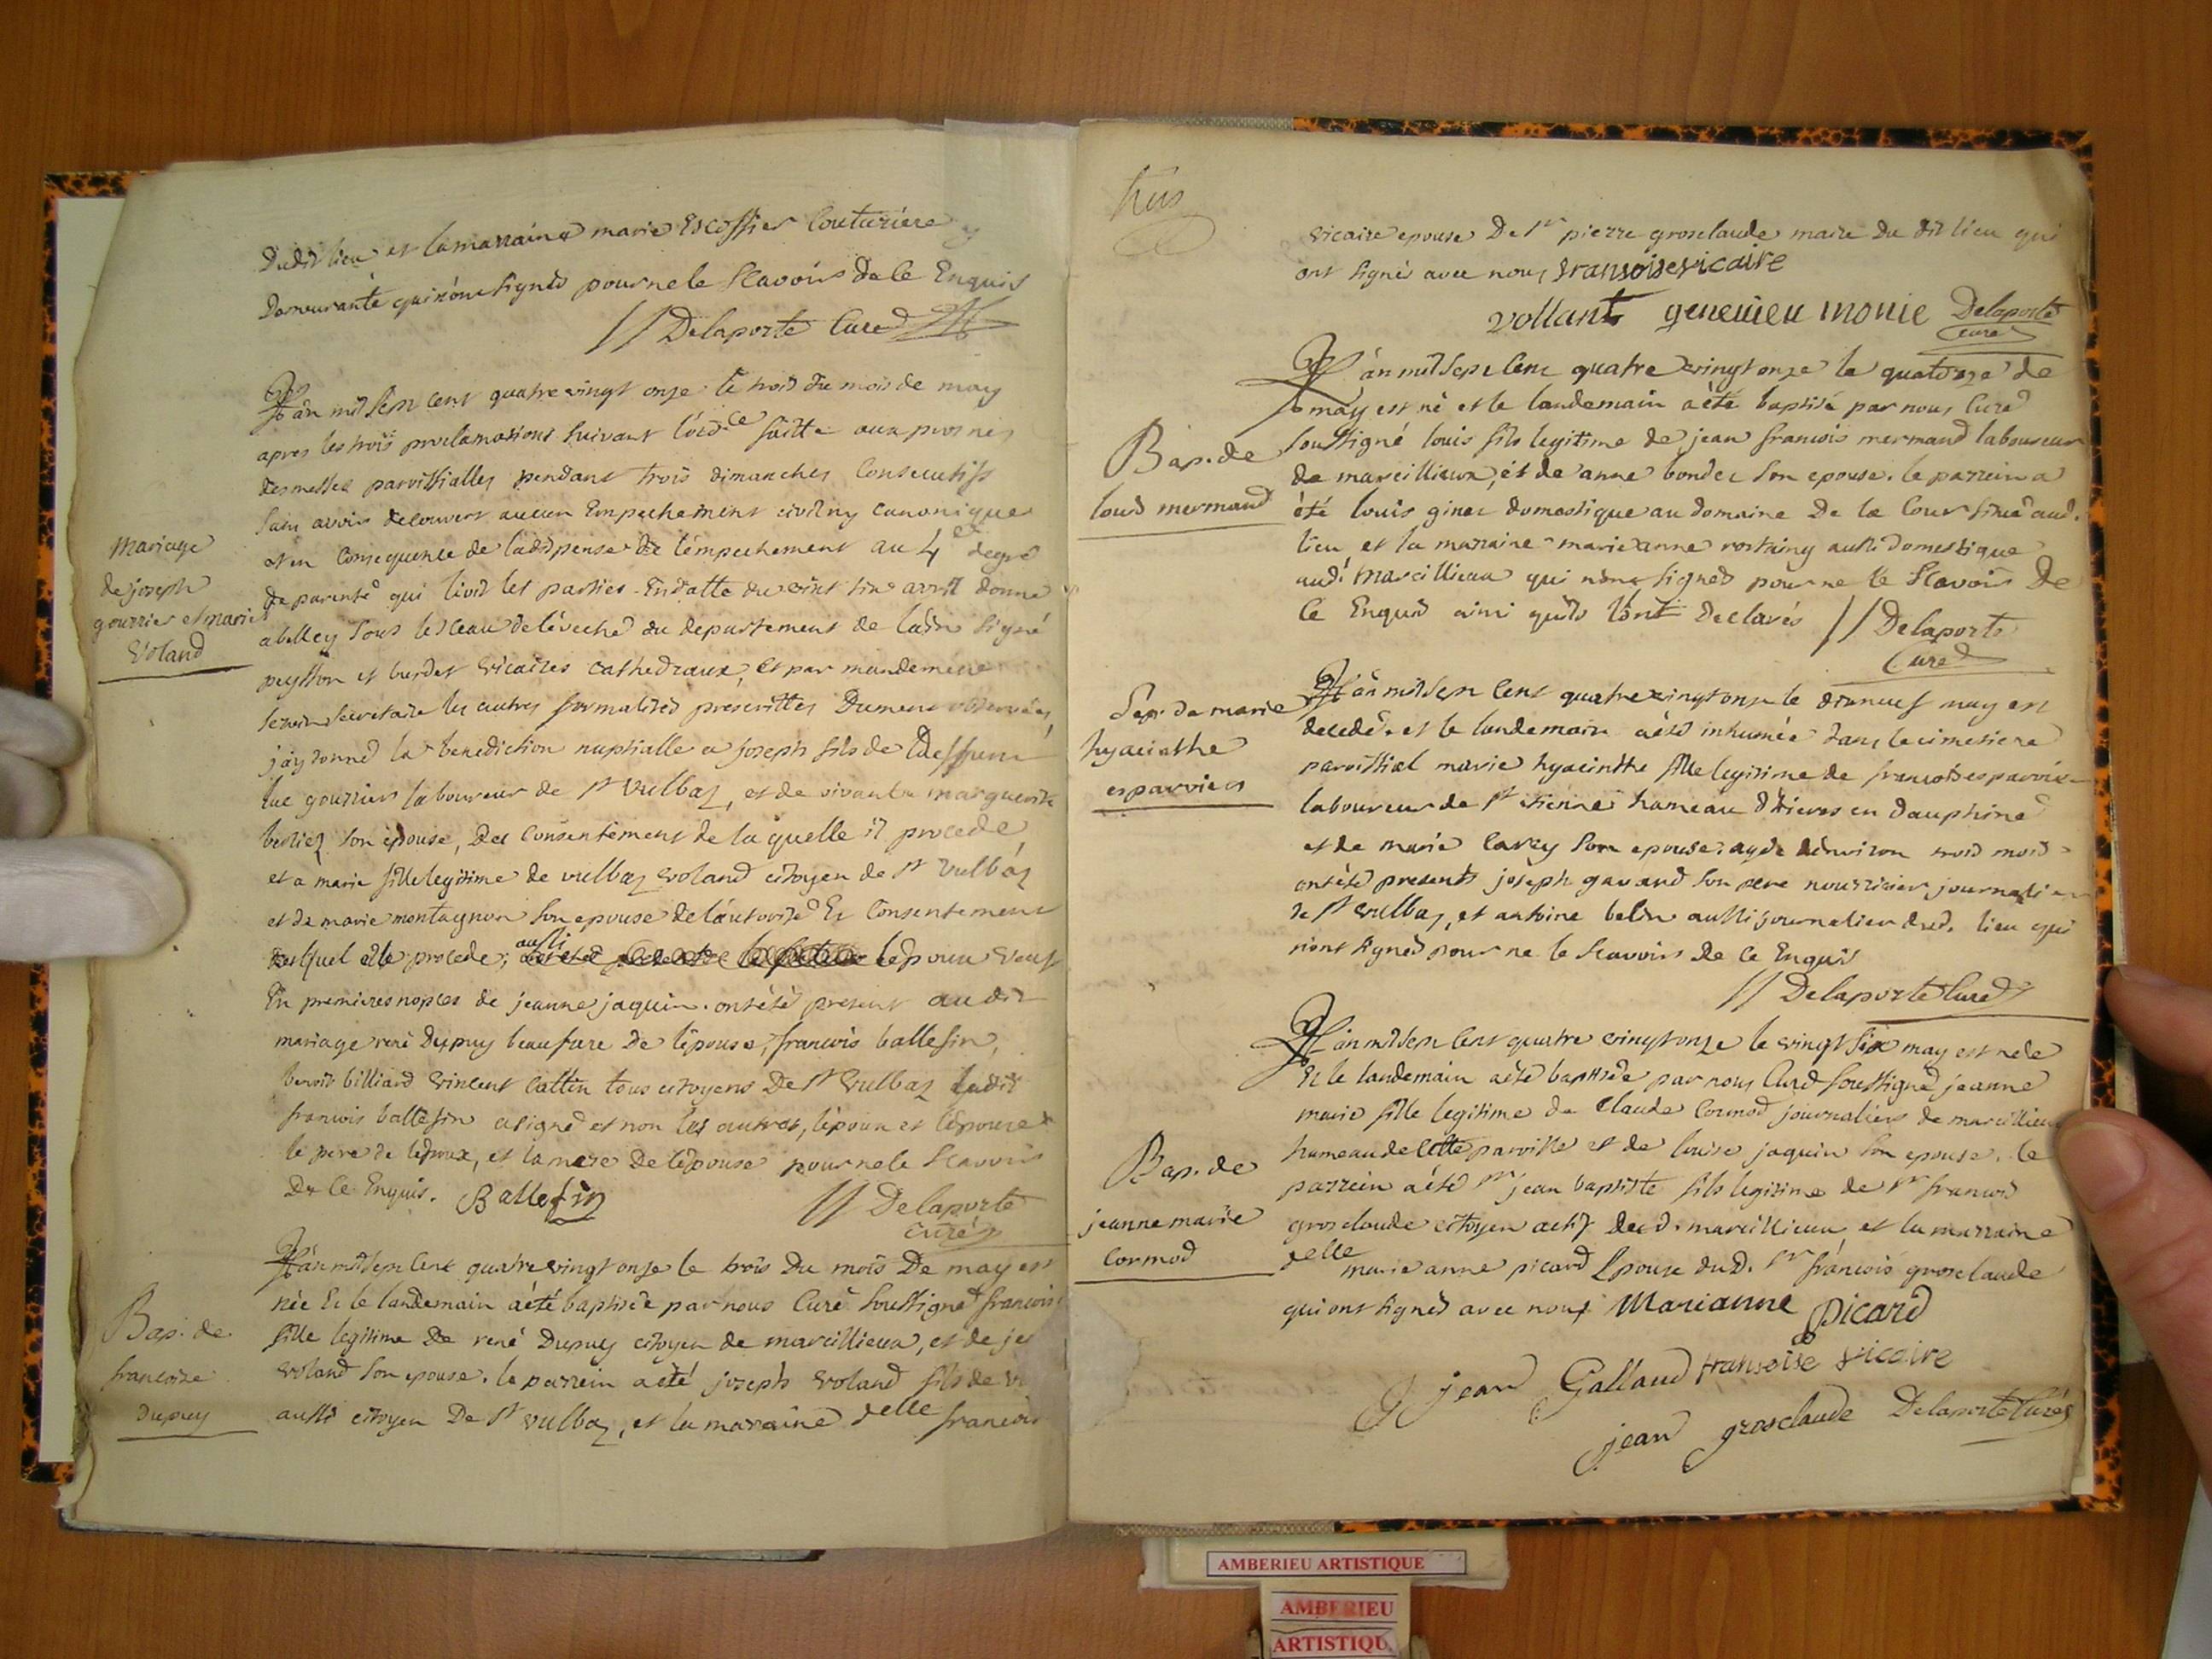 dudit lieu et la marraine marie Escoffier Couturiere y
demeurante qui n'ont signés pour ne le sçavoir de ce Enquis
// Delaporte Curé
L'an mil sept cent quatre vingt onze le trois du mois de may
apres les trois proclamations suivant l'ord.ce faitte aux prosnes
des messes paroissialles pendant trois dimanches Consecutifs
sans avoir decouvert aucun Empechement civil ny canonique
et en Consequence de la dispense de l'empechement au 4e degré
de parenté qui lioit les parties. En datte du vint six avril donné
a belley sous le sceau de l'eveché du departement de l'ain signé
peysson et burdet vicaires cathedraux, et par mandement
secretaire les autres formalités prescrittes Dument observées,
j'ay donné la benediction nuptialle a joseph fils de deffunt
luc gourrier laboureur de st vulbaz, et de vivante marguerite
berliez son epouse, du Consentement de la quelle il procede,
et a marie fille legitime de vulbaz voland citoyen de st vulbaz
et de marie montagnon son epouse de l'autorité Et Consentement
desquel elle procede; aussi l'epoux veuf
En premieres nopces de jeanne jaquin. ont été present au dit
mariage rené dupuy beaufrere de l'epouse, francois ballefin,
benoit billiard vincent cattin tous citoyens de st vulbaz ledit
francois ballefin a signé et non les autres, l'epoux et l'epouse
le pere de l'epoux, et la mere de l'epouse pour ne le sçavoir
De ce Enquis. Ballefin // Delaporte
curé
L'an mil sept cent quatre vingt onze le trois du mois De may est
née Et le landemain a été baptisée par nous Curé Soussigné francoise
fille legitime de rené Dupuy citoyen de marcillieux, et de je
voland son epouse. le parrein a été joseph voland fils de v
aussi citoyen De st vulbaz, et la marraine delle francoise
Mariage
de joseph
gourrier et marie
Voland
Bap. de
francoise
dupuy
vicaire epouse De sr pierre grosclaude maire du dit lieu qui
ont signé avec nous fransoise vicaire
vollant genevieu monie Delaporte
curé
L'an mil sept Cent quatre vingt onze le quatorze de
may est né et le landemain a été baptisé par nous Curé
Soussigné louis fils legitime de jean francois mermand laboureur
de marcillieux, et de anne bondet son epouse. le parrein a
été louis ginet domestique au domaine De la Cour situé aud.
lieu et la marraine marie anne rostaing aussi domestique
aud. marcillieux qui n'ont signés pour ne le sçavoir De
ce Enquis ainsi qu'ils l'ont declarés // Delaporte
Curé
L'an mil sept Cent quatre vingt onze le dixneuf may est
decedé. et le landemain a été inhumée dans le cimetiere
paroissial marie hyacinthe fille legitime de francois esparvier
laboureur de st etienne hameau d'hieres en dauphiné
et de marie carey son epouse: agée d'environ trois mois
ont été presents joseph gavand son pere nourricier journalier
de st vulbaz, et antoine belin aussi journalier dud. lieu qui
n'ont signés pour ne le sçavoir de ce Enquis
// Delaporte Curé
L'an mil sept Cent quatre vingt onze le vingt six may est née
Et le landemain a été baptisée par nous Curé soussigné jeanne
marie fille legitime de claude Cormod journalier de marcillieux
hameau de cette paroisse et de louise jaquin son epouse. le
parrein a été sr jean baptiste fils legitime de sr francois
grosclaude citoyen actif dud. marcillieux et la marraine
delle marie anne picard Epouse dud. sr francois grosclaude
qui ont signés avec nous Marianne picard
jean Galland fransoise vicaire
jean grosclaude Delaporte Curé
Bap. de
louis mermand
Sep. de marie
hyacinthe
esparvier
Bap. de
jeanne marie
Cormod
AMBERIEU ARTISTIQUE
AMBERIEU
ARTISTIQU